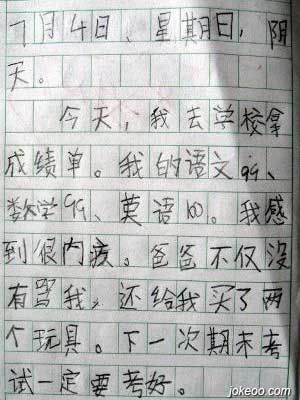 7月4日、星期日，阴
天。
今天，我去学校拿
成绩单。我的语文99、
数学99、英语100。我感
到很内疚。爸爸不仅没
有骂我，还给我买了两
个玩具。下一次期末考
试一定要考好。
jokeoo.com